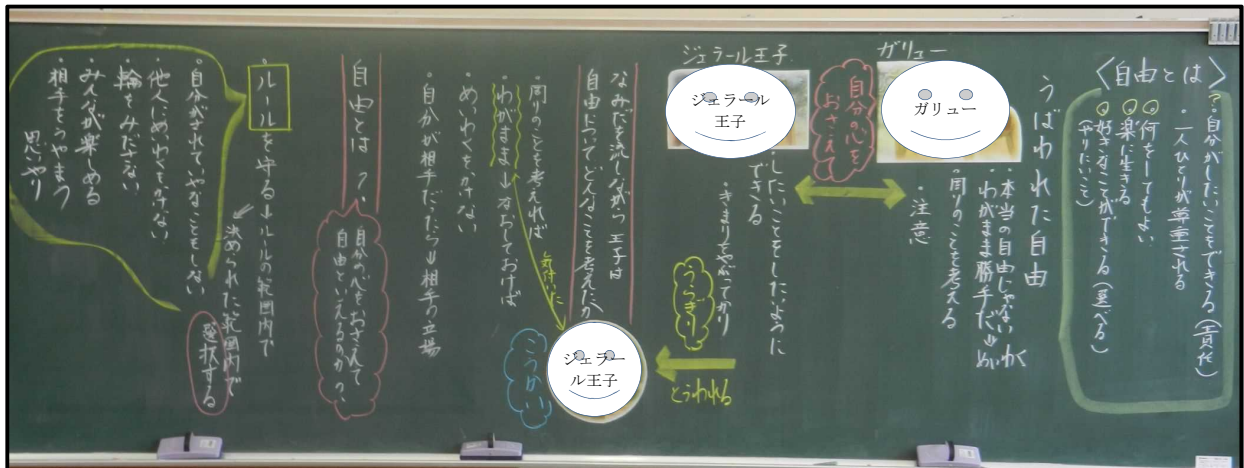 〈自由とは〉
？・自分がしたいことをできる（責任）
・一人ひとりが尊重される
・何をしてもよい
・楽に生きる
・好きなことができる（選べる）
（やりたいこと）
うばわれた自由
ガリュー
ガリュー
・本当の自由じゃない
・わがまま勝手だ⇒めいわく
・周りのことを考える
・注意
自分の心を
おさえて
ジェラール王子
ジェラール
王子
・したいことをしたいように
できる
・きまりをやぶってかり
うらぎり
とらわれる
なみだを流しながら王子は
自由についてどんなことを考えたか
ジェラー
ル王子
・周りのことを考えれば
気付いた
・わがまま→なおしておけば
こうかい
・めいわくをかけない
・自分が相手だったら⇒相手の立場
自由とは？
自分の心をおさえて
自由といえるのか？
・ルールを守る→ルールの範囲内で
決められた範囲内で
選択する
・自分がされていやなことをしない
・他人にめいわくをかけない
・輪をみださない
・みんなが楽しめる
・相手をうやまう
思いやり